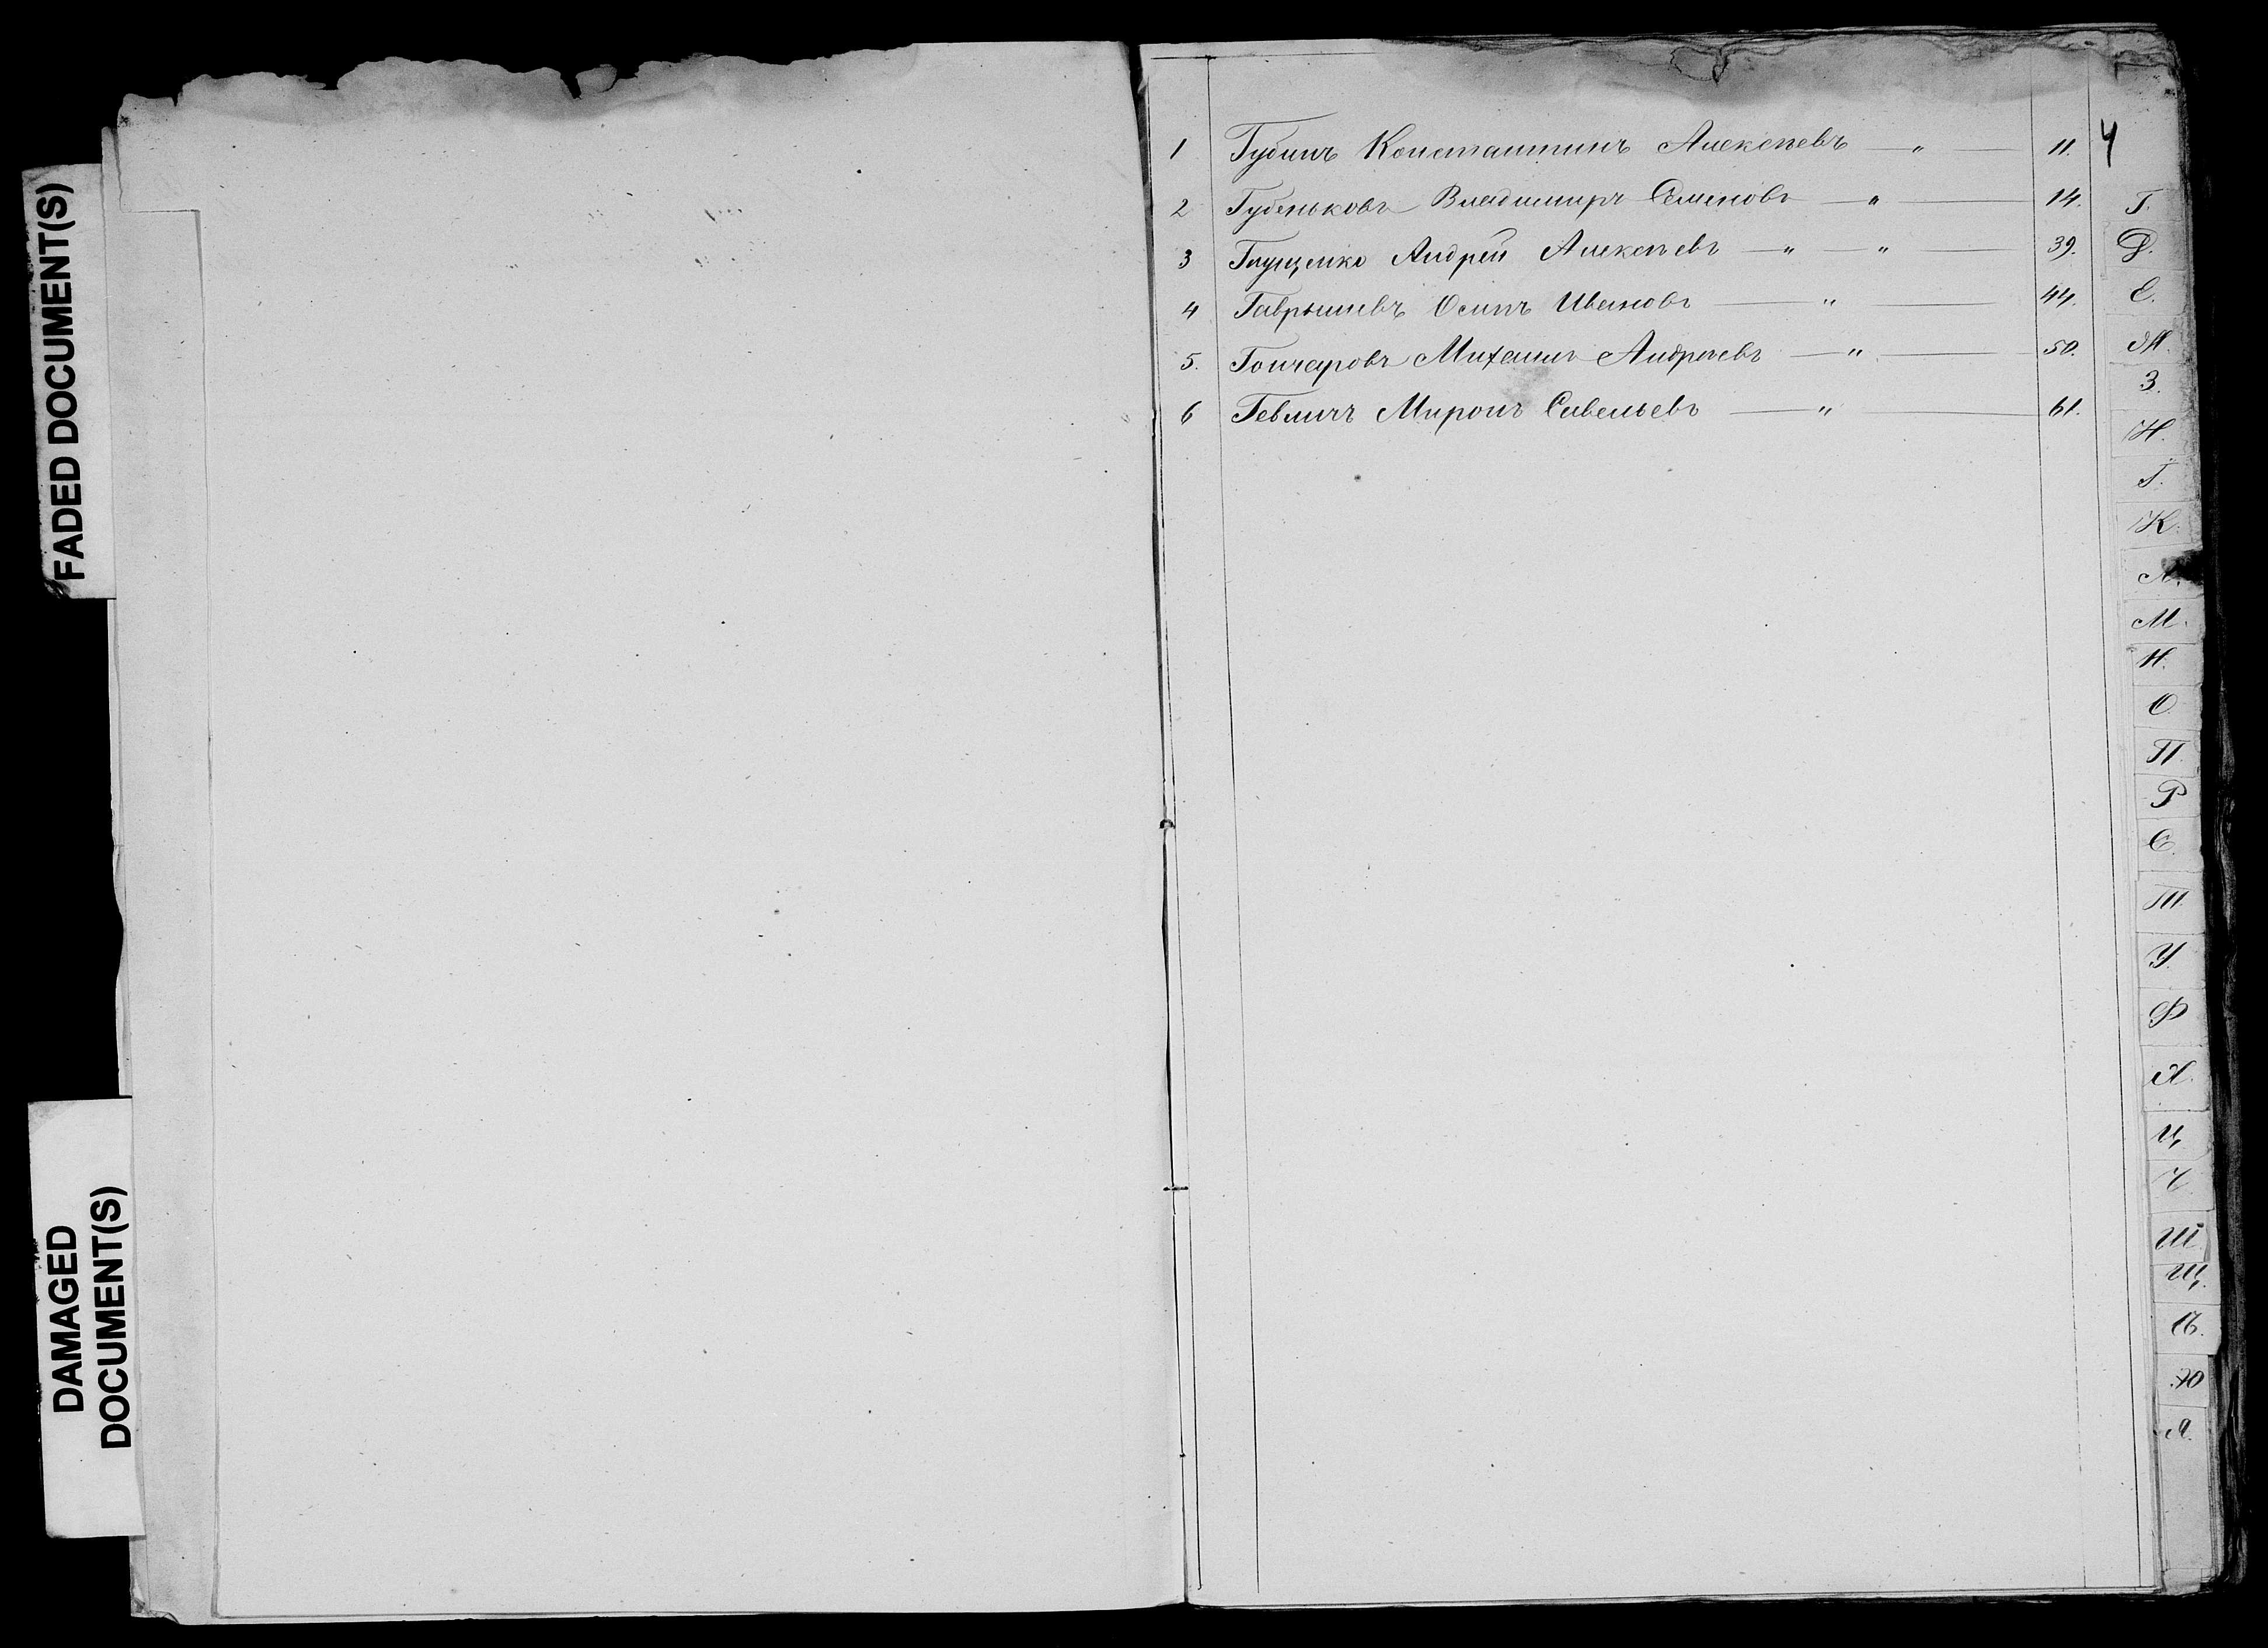 FADED DOCUMENT(S)
DAMAGED
DOCUMENT(S)
4
1 Губинъ Константинъ Алексѣевъ — " — 11.
2 Губеньковъ Владимиръ Семеновъ — " — 14.
3 Глущенко Андрей Алексѣевъ — " — " — 39.
4 Гаврышевъ Осипъ Ивановъ — " — 44.
5. Гончаровъ Михаилъ Андреевъ — " — 50.
6 Гевличъ Миронъ Савельевъ — " — 61.
Г.
Д.
Е.
Ж.
З.
И.
І.
К.
Л.
М.
Н.
О
П.
Р
С.
Т
У.
Ф
Х.
Ц
Ч.
Ш
Щ.
Ѣ.
Ю
Я.